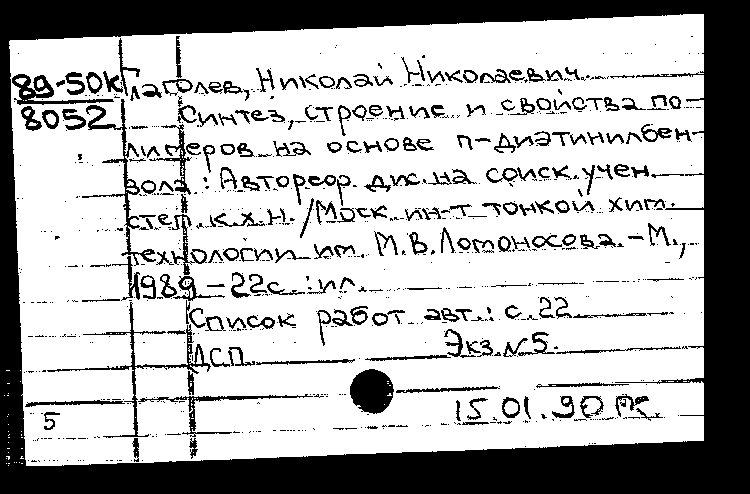 89-50к Глаголев, Николай Николаевич
8052 Синтез, строение и свойства по-
лимеров на основе п-диэтинилбен-
зола: Автореф. дис. на соиск. учен.
степ. к.х.н. / Моск. ин-т тонкой хим.
технологии им. М.В.Ломоносова. - М.,
1989 - 22с. : ил.
Список работ авт.: с. 22
ДСП Экз.N5.
5 15.01.90